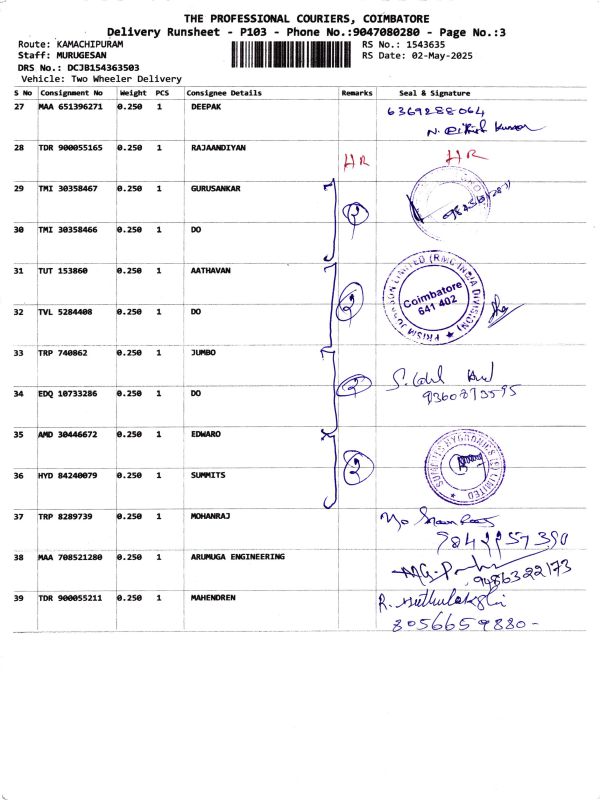 THE PROFESSIONAL COURIERS, COIMBATORE
Delivery Runsheet - P103 - Phone No.:9047080280 - Page No.:3
Route: KAMACHIPURAM RS No.: 1543635
Staff: MURUGESAN RS Date: 02-May-2025
DRS No.: DCJB154363503
Vehicle: Two Wheeler Delivery
S No Consignment No Weight PCS Consignee Details Remarks Seal & Signature
27 MAA 651396271 0.250 1 DEEPAK 6369288064
28 TDR 900055165 0.250 1 RAJAANDIYAN HR HR
29 TMI 30358467 0.250 1 GURUSANKAR 2
30 TMI 30358466 0.250 1 DO
31 TUT 153860 0.250 1 AATHAVAN 2 PRISM JOHNSON LIMITED (RMC INDIA DIVISION) Coimbatore 641 402
32 TVL 5284408 0.250 1 DO
33 TRP 740862 0.250 1 JUMBO 2
34 EDQ 10733286 0.250 1 DO 9360873595
35 AMD 30446672 0.250 1 EDWARO 2 LIMITED
36 HYD 84240079 0.250 1 SUMMITS
37 TRP 8289739 0.250 1 MOHANRAJ
38 MAA 708521280 0.250 1 ARUMUGA ENGINEERING 9486322173
39 TDR 900055211 0.250 1 MAHENDREN
8056659880-